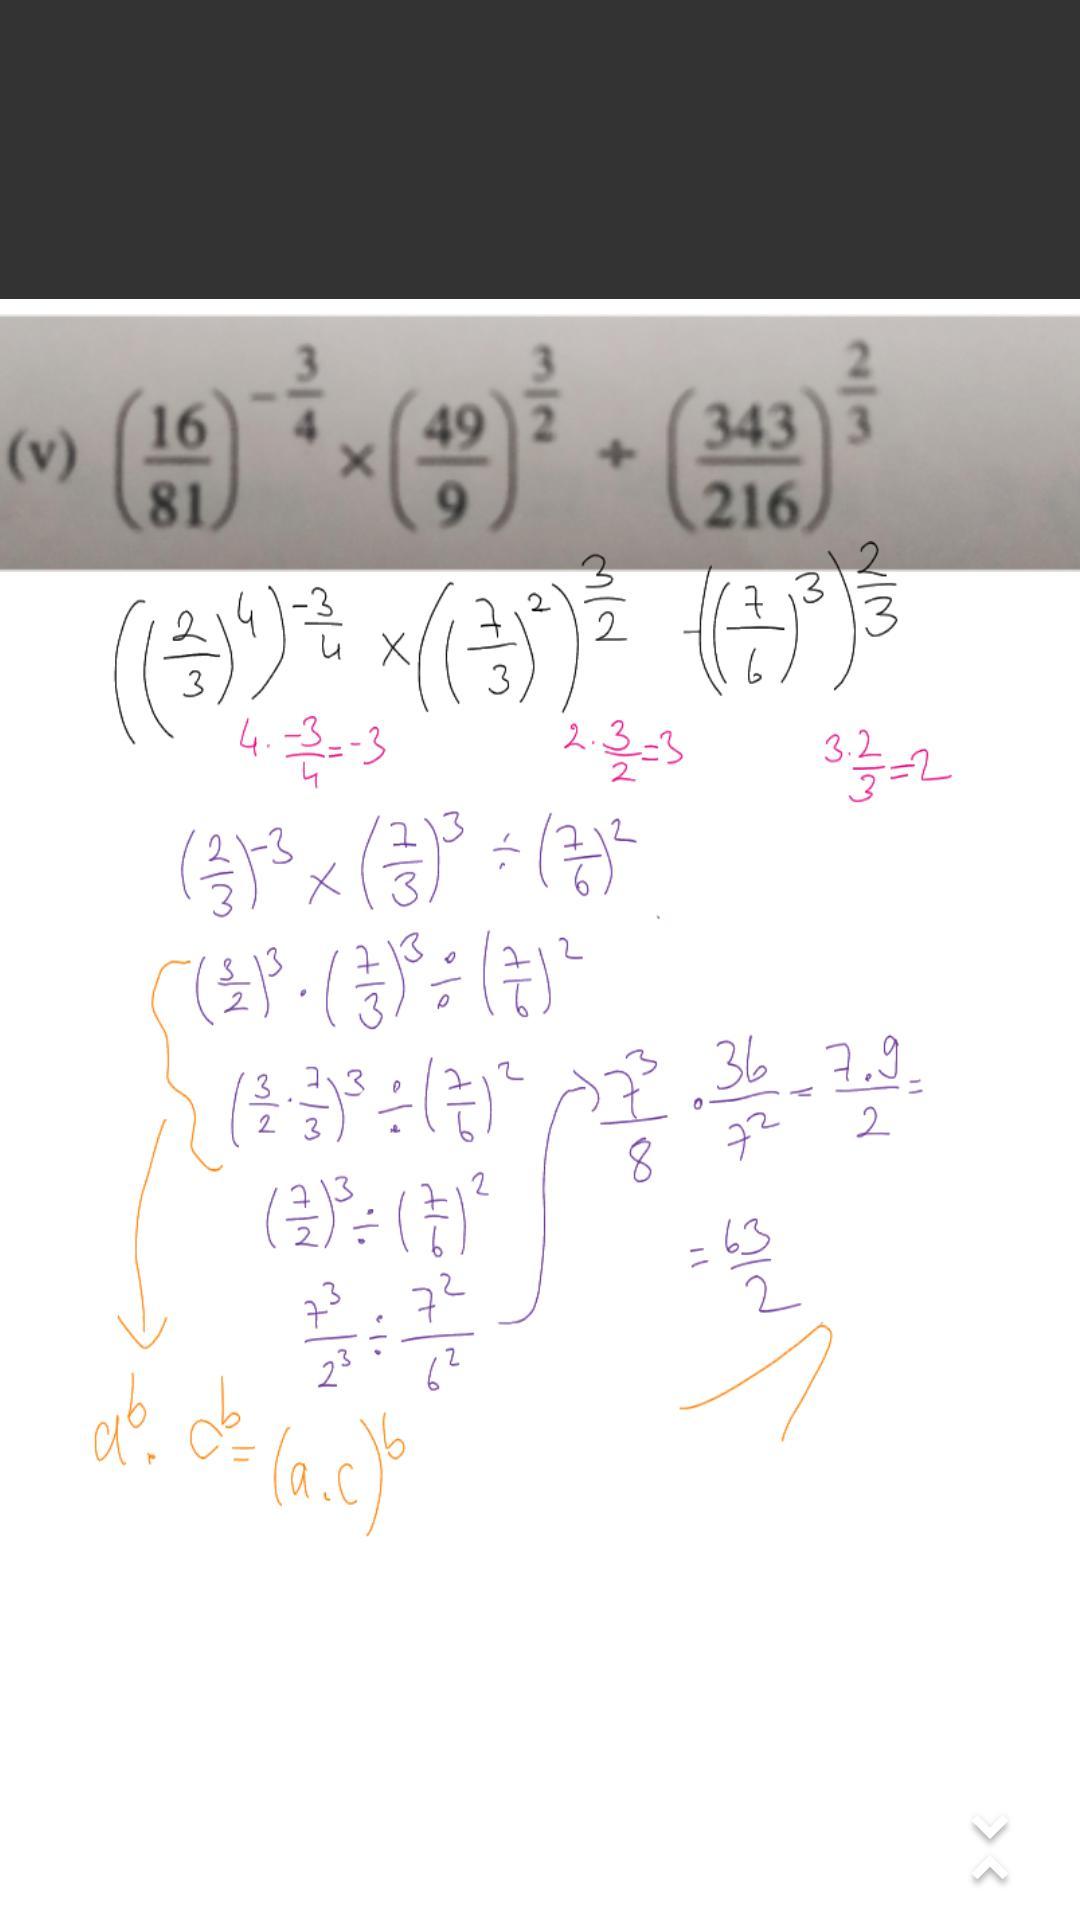 (v) (16/81)^(-3/4) × (49/9)^(3/2) ÷ (343/216)^(2/3)
((2/3)^4)^(-3/4) × ((7/3)^2)^(3/2) -((7/6)^3)^(2/3)
4 . -3/4 = -3
2 . 3/2 = 3
3 . 2/3 = 2
(2/3)^-3 × (7/3)^3 ÷ (7/6)^2
(3/2)^3 . (7/3)^3 ÷ (7/6)^2
(3/2 . 7/3)^3 ÷ (7/6)^2
(7/2)^3 ÷ (7/6)^2
7^3/2^3 ÷ 7^2/6^2
7^3/8 . 36/7^2 = 7.9/2 =
= 63/2
a^b . c^b = (a.c)^b